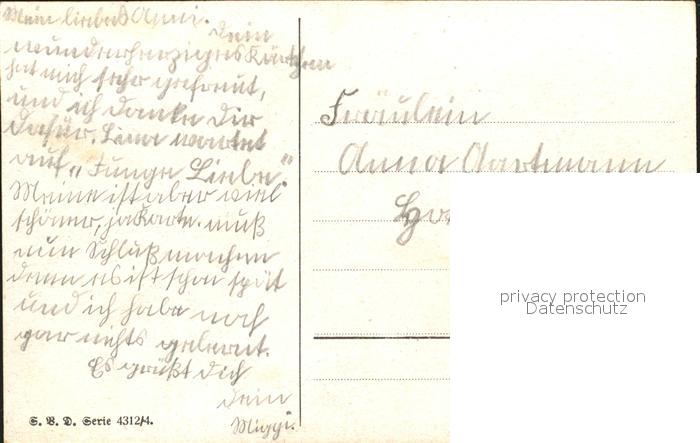 Mein liebes Anni.
Dein
wunderherziges Kärtchen
hat mich sehr gefreut,
und ich danke Dir
dafür. Lina wartet
auf „Junge Liebe".
Meine ist aber viel
schöner, ja Karte. muß
nun Schluß machen
denn es ist schon spät
und ich habe noch
gar nichts gelernt.
Es grüßt dich
dein
Miggi.
S. V. D. Serie 4312/4.
Fräulein
Anna Aartmann
privacy protection
Datenschutz